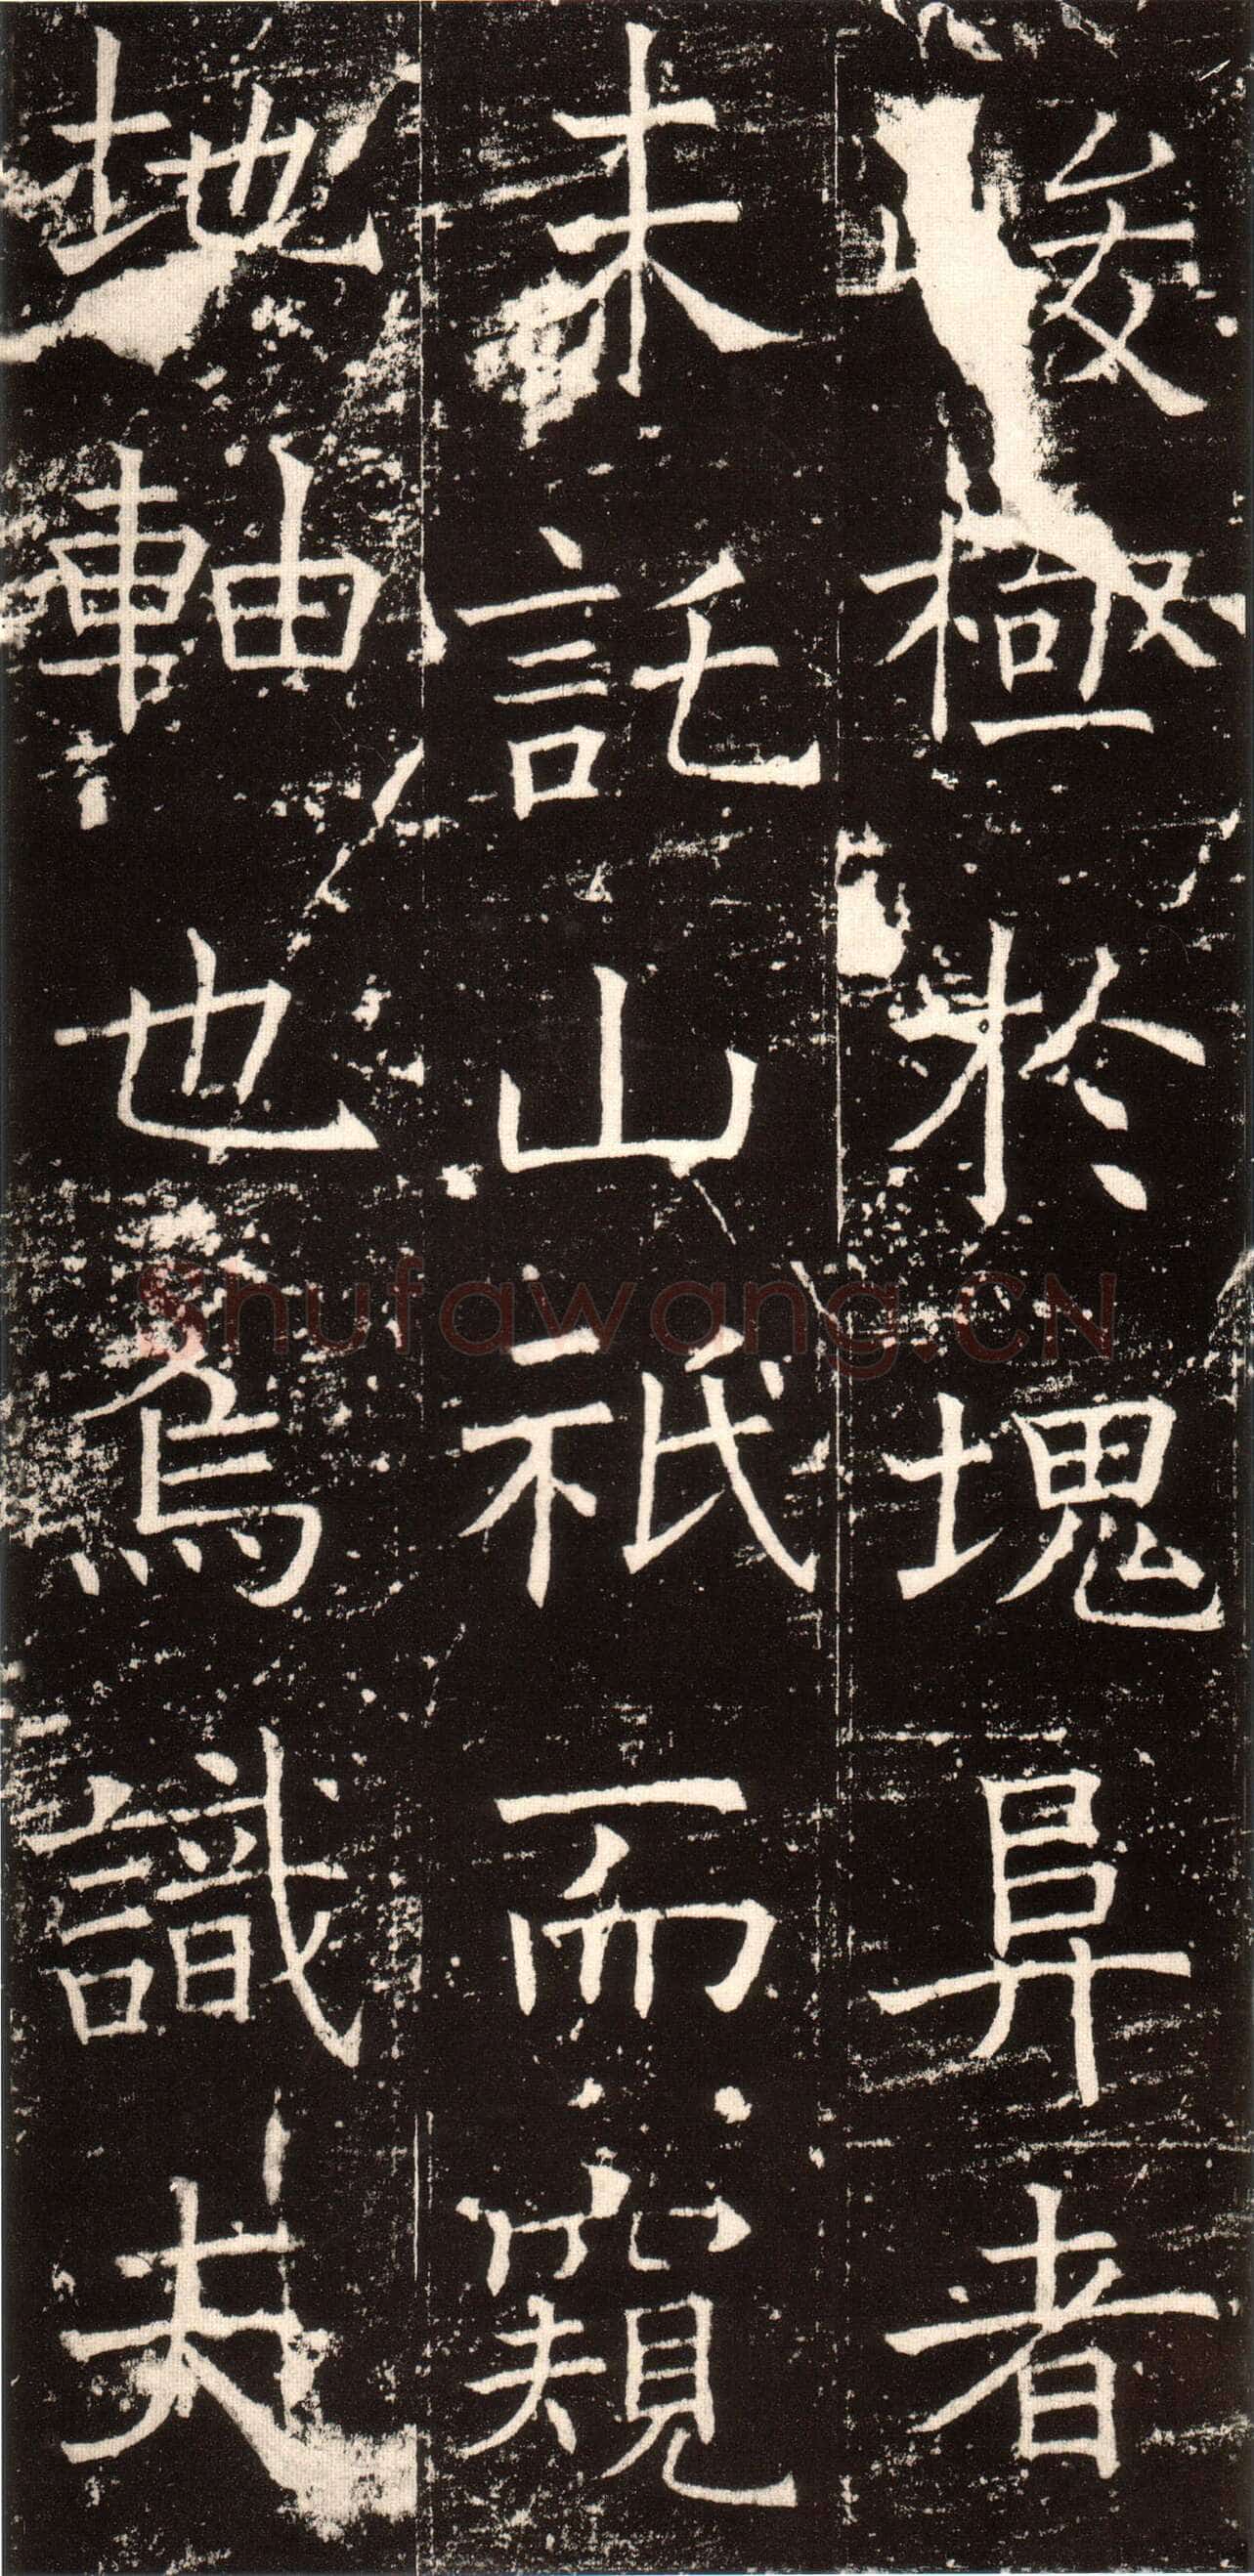 峻極於塊阜者
未託山祇而窺
地軸也焉識夫
Shufawang.CN